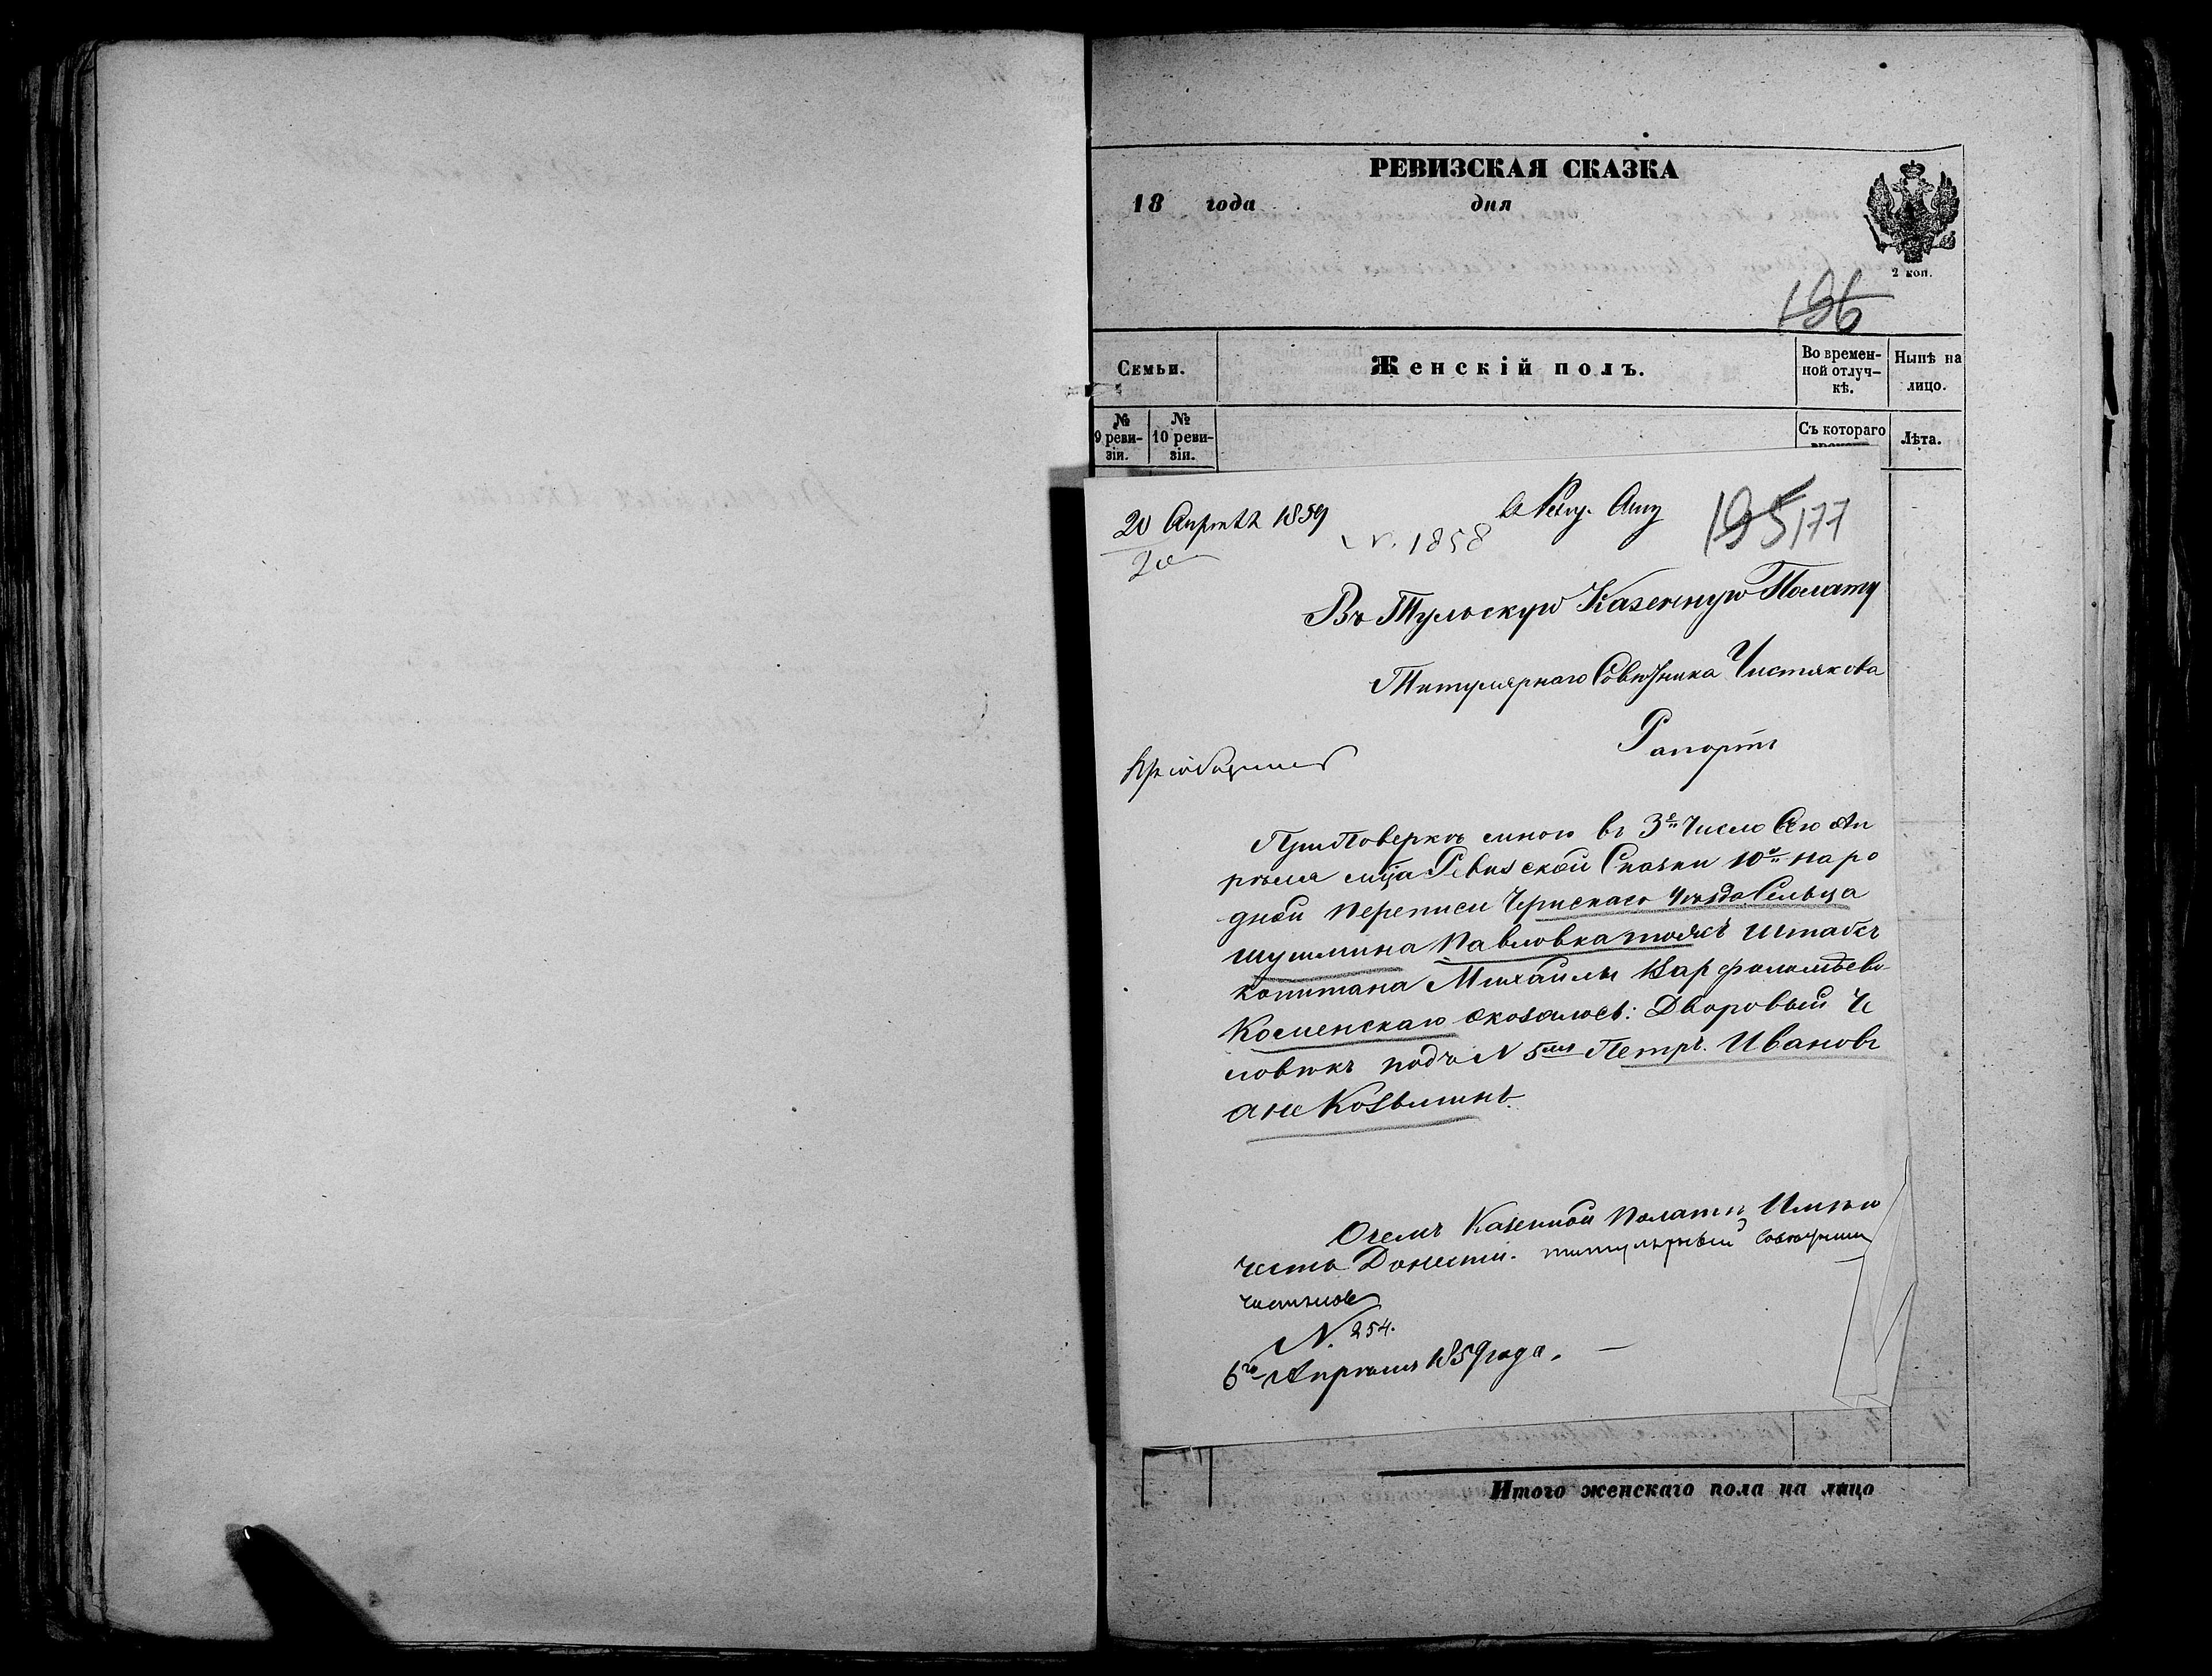 РЕВИЗСКАЯ СКАЗКА
18 года дня
2 коп.
196
Семьи.
Женскій полъ.
Во времен-
ной отлуч-
кѣ.
Нынѣ на
лицо.
№
9 реви-
зіи.
№
10 реви-
зіи.
Съ котораго
Лѣта.
20 Апрѣля 1859
20
N. 1858
195 177
Въ Тульскую Казенную Полату
Титулярнаго Совѣтника Чистякова
Рапортъ
Приобщить
При Поверкѣ мною въ 3е число Сего Ап
рѣля мца Ревизской Сказки 10й наро
дной переписи Чернскаго уѣзда Сельца
Шушмина Павловка тожъ Штабсъ
копитана Михайлы Варфоломѣева
Коменскаго оказалось: Дворовый Че
ловѣкъ подъ N 5мъ Петръ Ивановъ
а не Козьминъ.
Очемъ Казенной Полати Имѣю
честь Донести. титулярный Совѣтникъ
Чистяков
N. 254.
6го Апрѣля 1859 года.
Итого женскаго пола на лицо